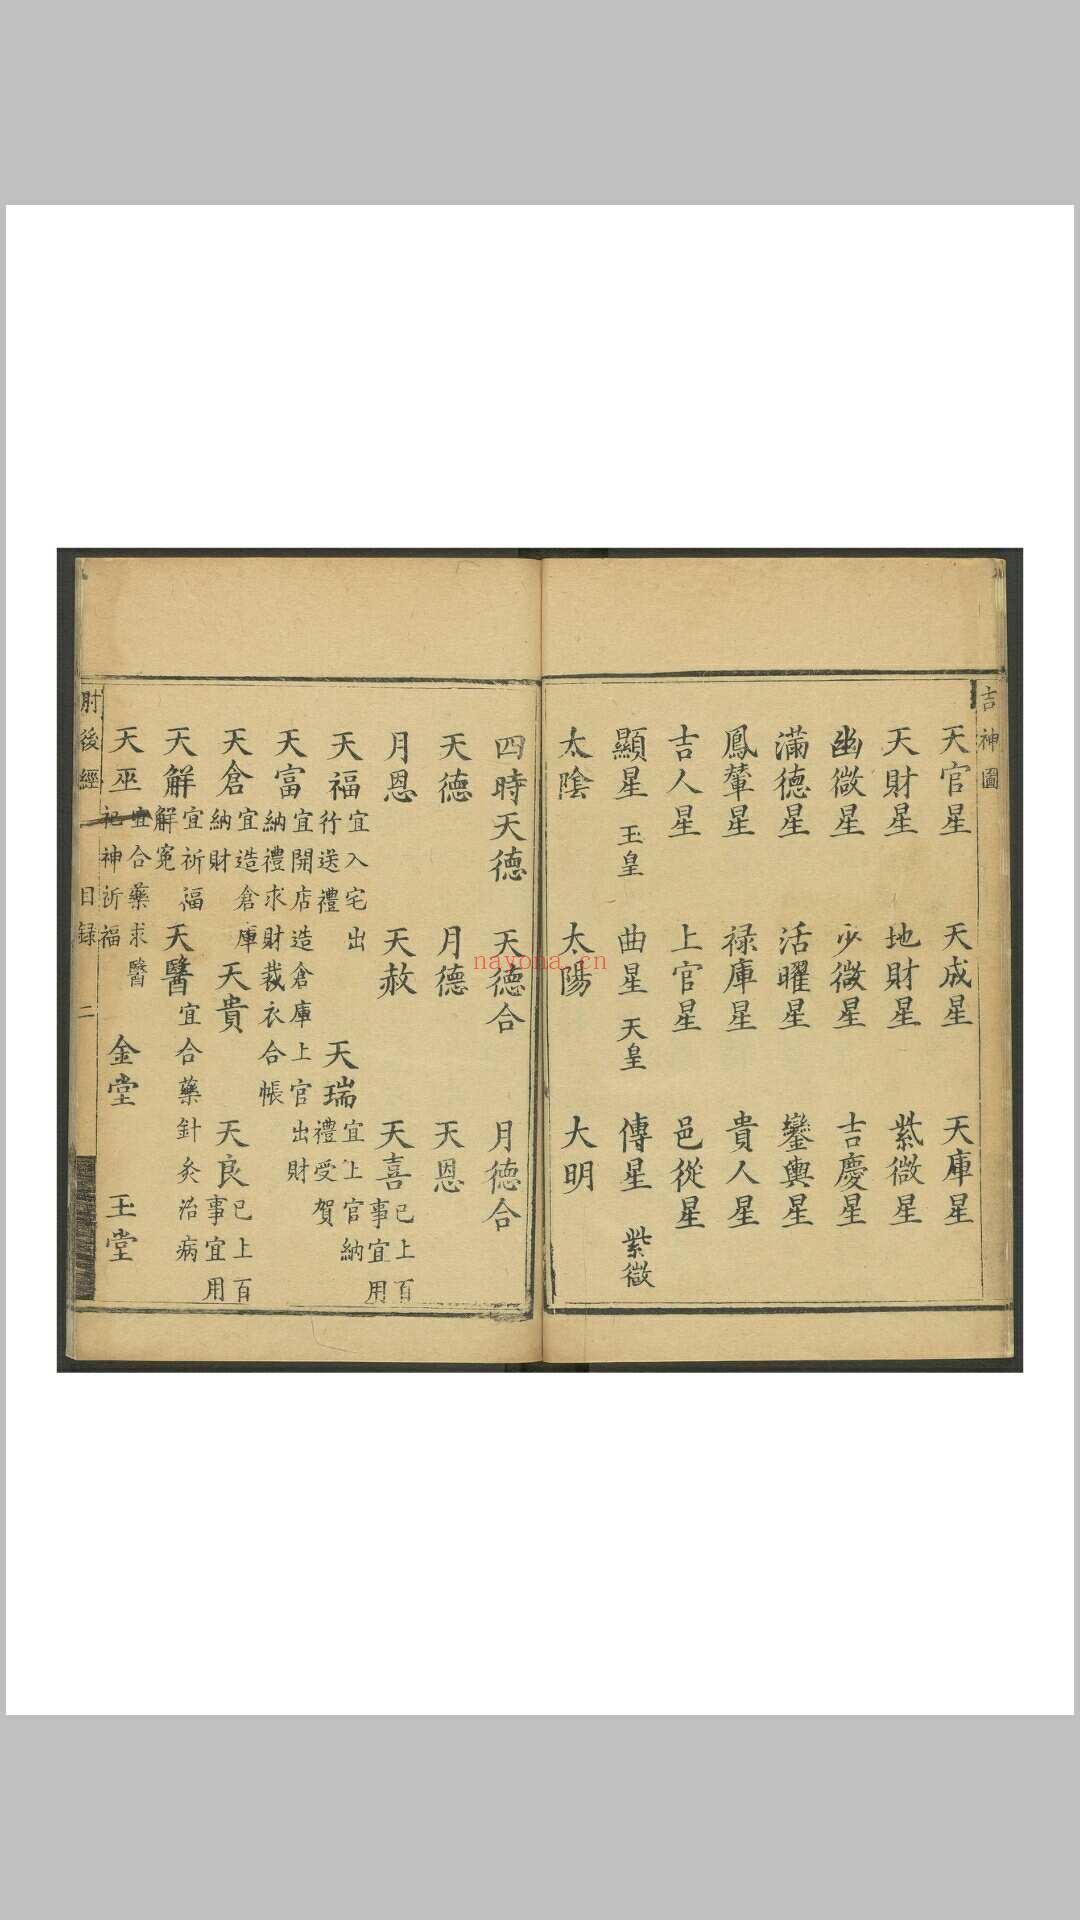 吉神圖
天官星 天成星 天庫星
天財星 地財星 紫微星
幽微星 少微星 吉慶星
滿德星 活曜星 鑾輿星
鳳輦星 禄庫星 貴人星
吉人星 上官星 邑從星
顯星 玉皇 曲星 天皇 傳星 紫微
太陰 太陽 大明
四時天德 天德合 月德合
天德 月德 天恩
月恩 天赦 天喜 已上百事宜用
天福 宜入宅出行送禮 天瑞 宜上官納禮受賀
天富 宜開店造倉庫上官出財納禮求財裁衣合帳
天倉 宜造倉庫納財 天貴 天良 已上百事宜用
天解 宜祈福解冤 天醫 宜合藥針灸治病
天巫 宜合藥求醫祀神祈福 金堂 玉堂
肘後經 目録 二
nayona.cn